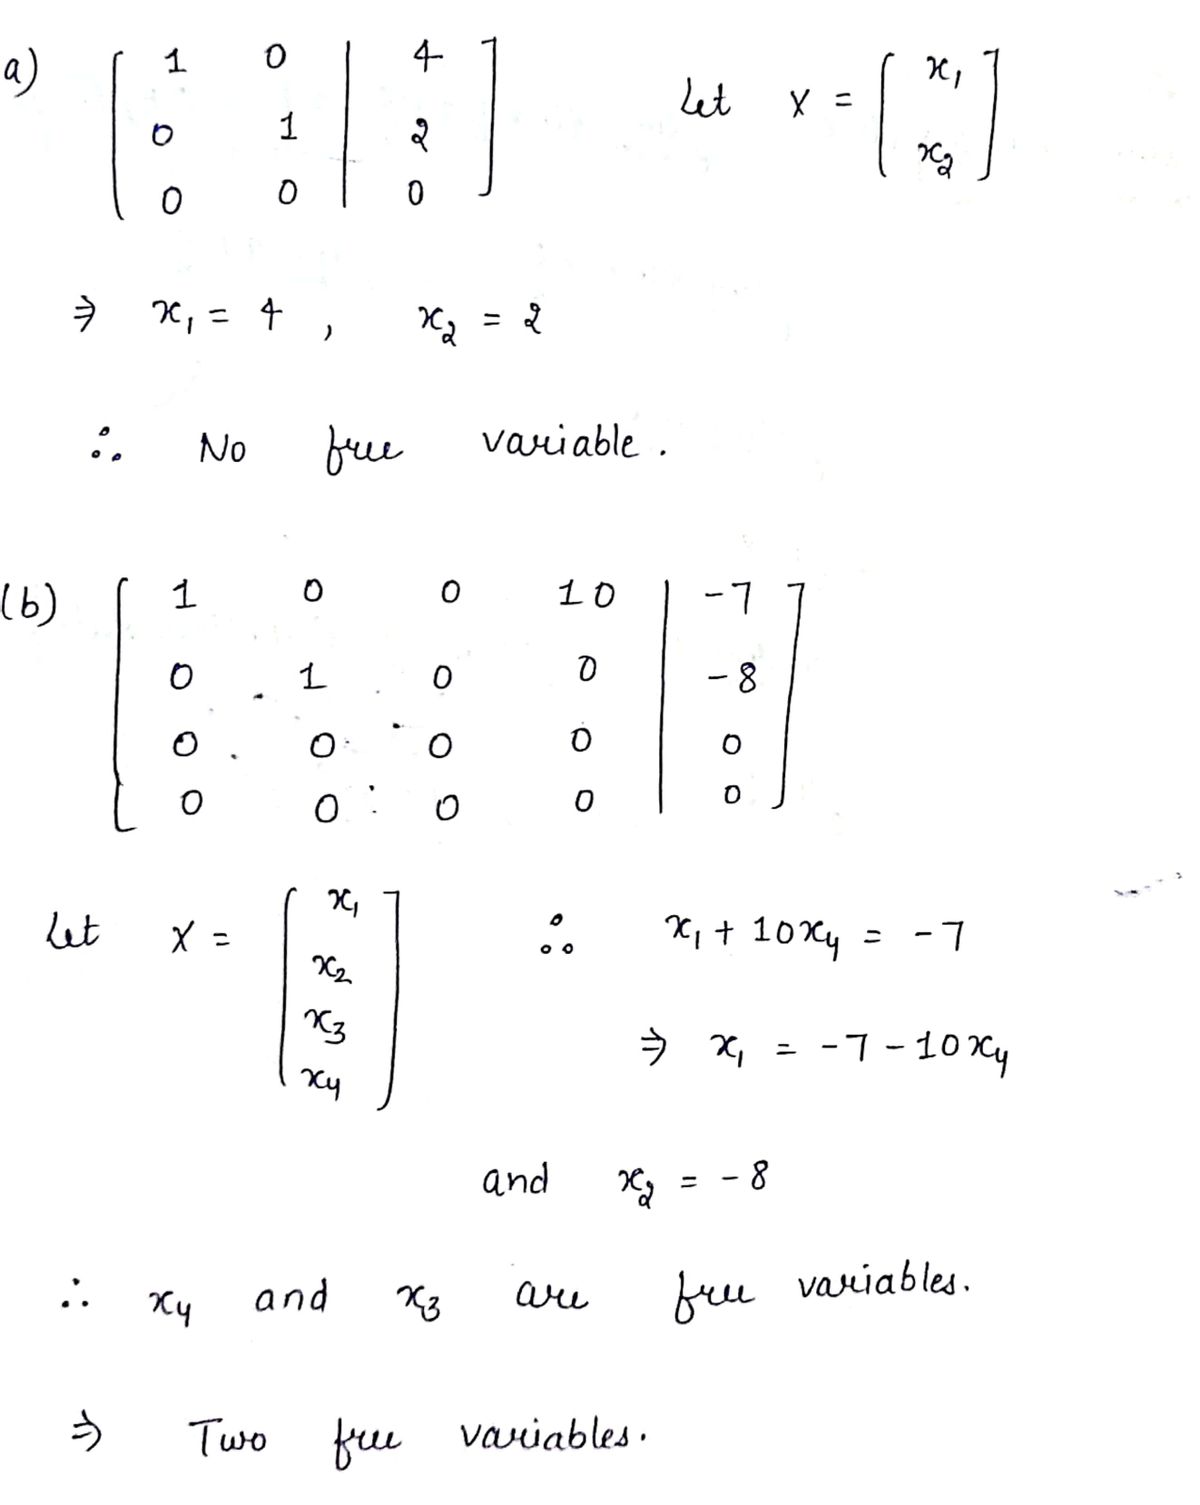 a) [ 1 0 | 4 ] Let X = [ x₁ ]
[ 0 1 | 2 ] [ x₂ ]
[ 0 0 | 0 ]
⇒ x₁ = 4 , x₂ = 2
∴ No free variable.
(b) [ 1 0 0 10 | -7 ]
[ 0 1 0 0 | -8 ]
[ 0 0 0 0 | 0 ]
[ 0 0 0 0 | 0 ]
Let X = [ x₁ ] ∴ x₁ + 10x₄ = -7
[ x₂ ]
[ x₃ ] ⇒ x₁ = -7 - 10x₄
[ x₄ ]
and x₂ = -8
∴ x₄ and x₃ are free variables.
⇒ Two free variables.